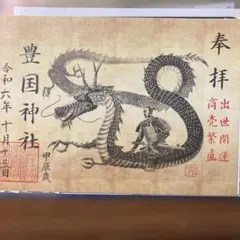 奉拝
出世開運
商売繁盛
甲辰歳
豊国神社
令和六年十月十三日